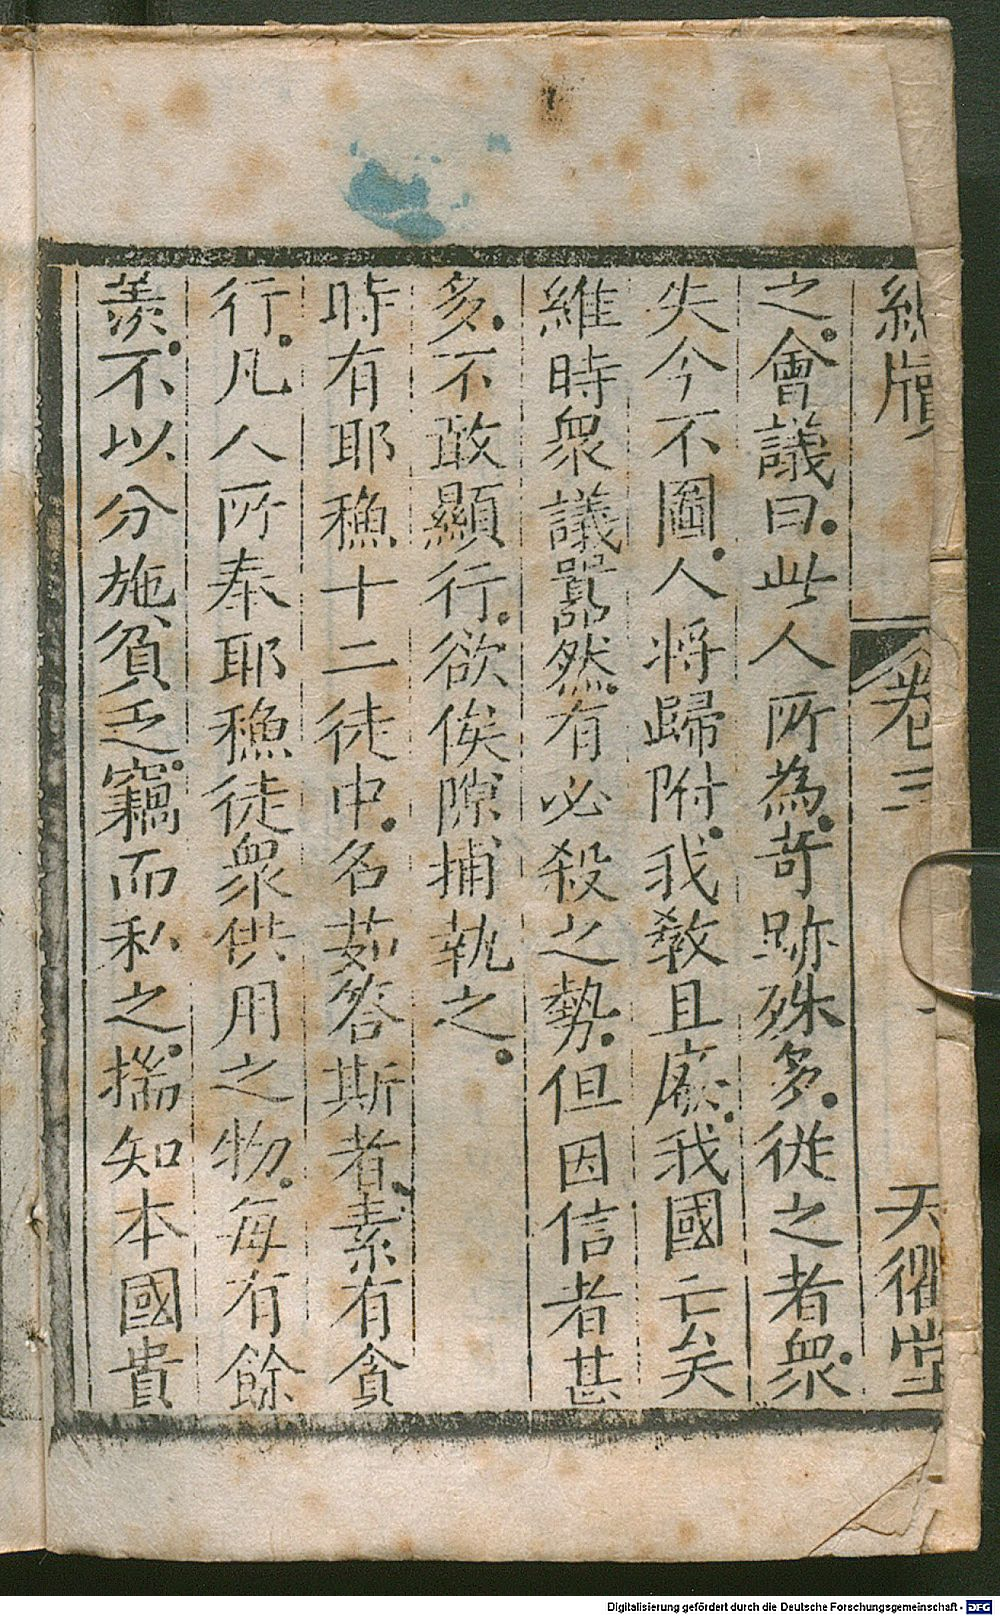 卷三
天
之。會議曰。此人所為。奇跡殊多。從之者衆。
失今不圖。人將歸附。我教且廢。我國亡矣
維時衆議囂然。有必殺之勢。但因信者甚
多。不敢顯行。欲俟隙捕執之。
時有耶穌十二徒中。名茹答斯者。素有貪
行。凡人所奉耶穌徒衆供用之物。每有餘
羨。不以分施貧乏。竊而私之。揣知本國貴
Digitalisierung gefördert durch die Deutsche Forschungsgemeinschaft - DFG